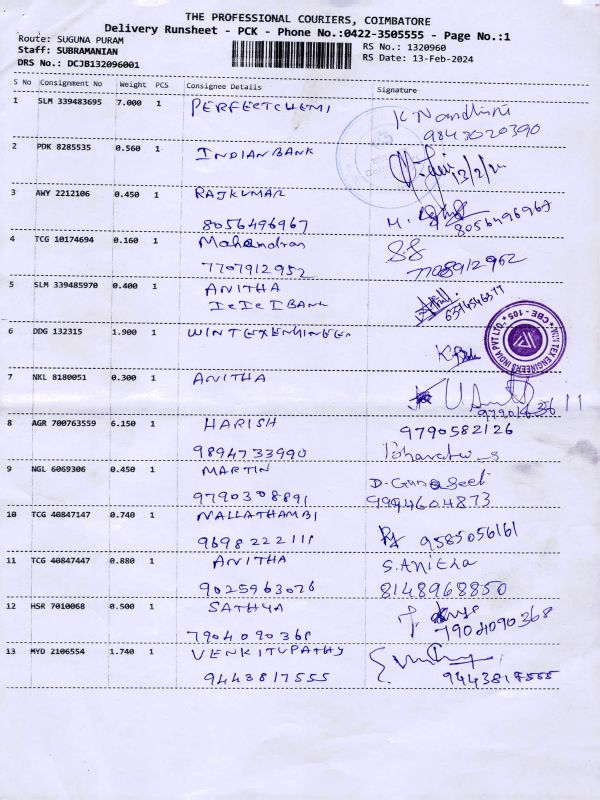 THE PROFESSIONAL COURIERS, COIMBATORE
Delivery Runsheet - PCK - Phone No.:0422-3505555 - Page No.:1
Route: SUGUNA PURAM
RS No.: 1320960
Staff: SUBRAMANIAN
RS Date: 13-Feb-2024
DRS No.: DCJB132096001
S No Consignment No Weight PCS Consignee Details Signature
1 SLM 339483695 7.000 1 PERFECTCHEMI K Nandhini
9843020390
2 PDK 8285535 0.560 1 INDIAN BANK
13/2/24
3 AWY 2212106 0.450 1 RAJKUMAR
8056496967 8056496967
4 TCG 10174694 0.160 1 Mahendran
7707912952 7708912962
5 SLM 339485970 0.400 1 ANITHA
ICICI BANK 6374546577
6 DDG 132315 1.900 1 WINTEXENGINEER
TEX ENGINEERS INDIA PVT LTD. * CBE - 105 *
7 NKL 8180051 0.300 1 ANITHA
8 AGR 700763559 6.150 1 HARISH 9790582126
9894733990 Bharath . S
9 NGL 6069306 0.450 1 MARTIN D. Gunaseel
9790308891 9994604873
10 TCG 40847147 0.740 1 NALLATHAMBI
9698222111 9585056161
11 TCG 40847447 0.880 1 ANITHA S. Anitha
9025963026 8148968850
12 HSR 7010068 0.500 1 SATHYA
7904090368 7904090368
13 MYD 2106554 1.740 1 VENKITUPATHY
9443817555 9443817555